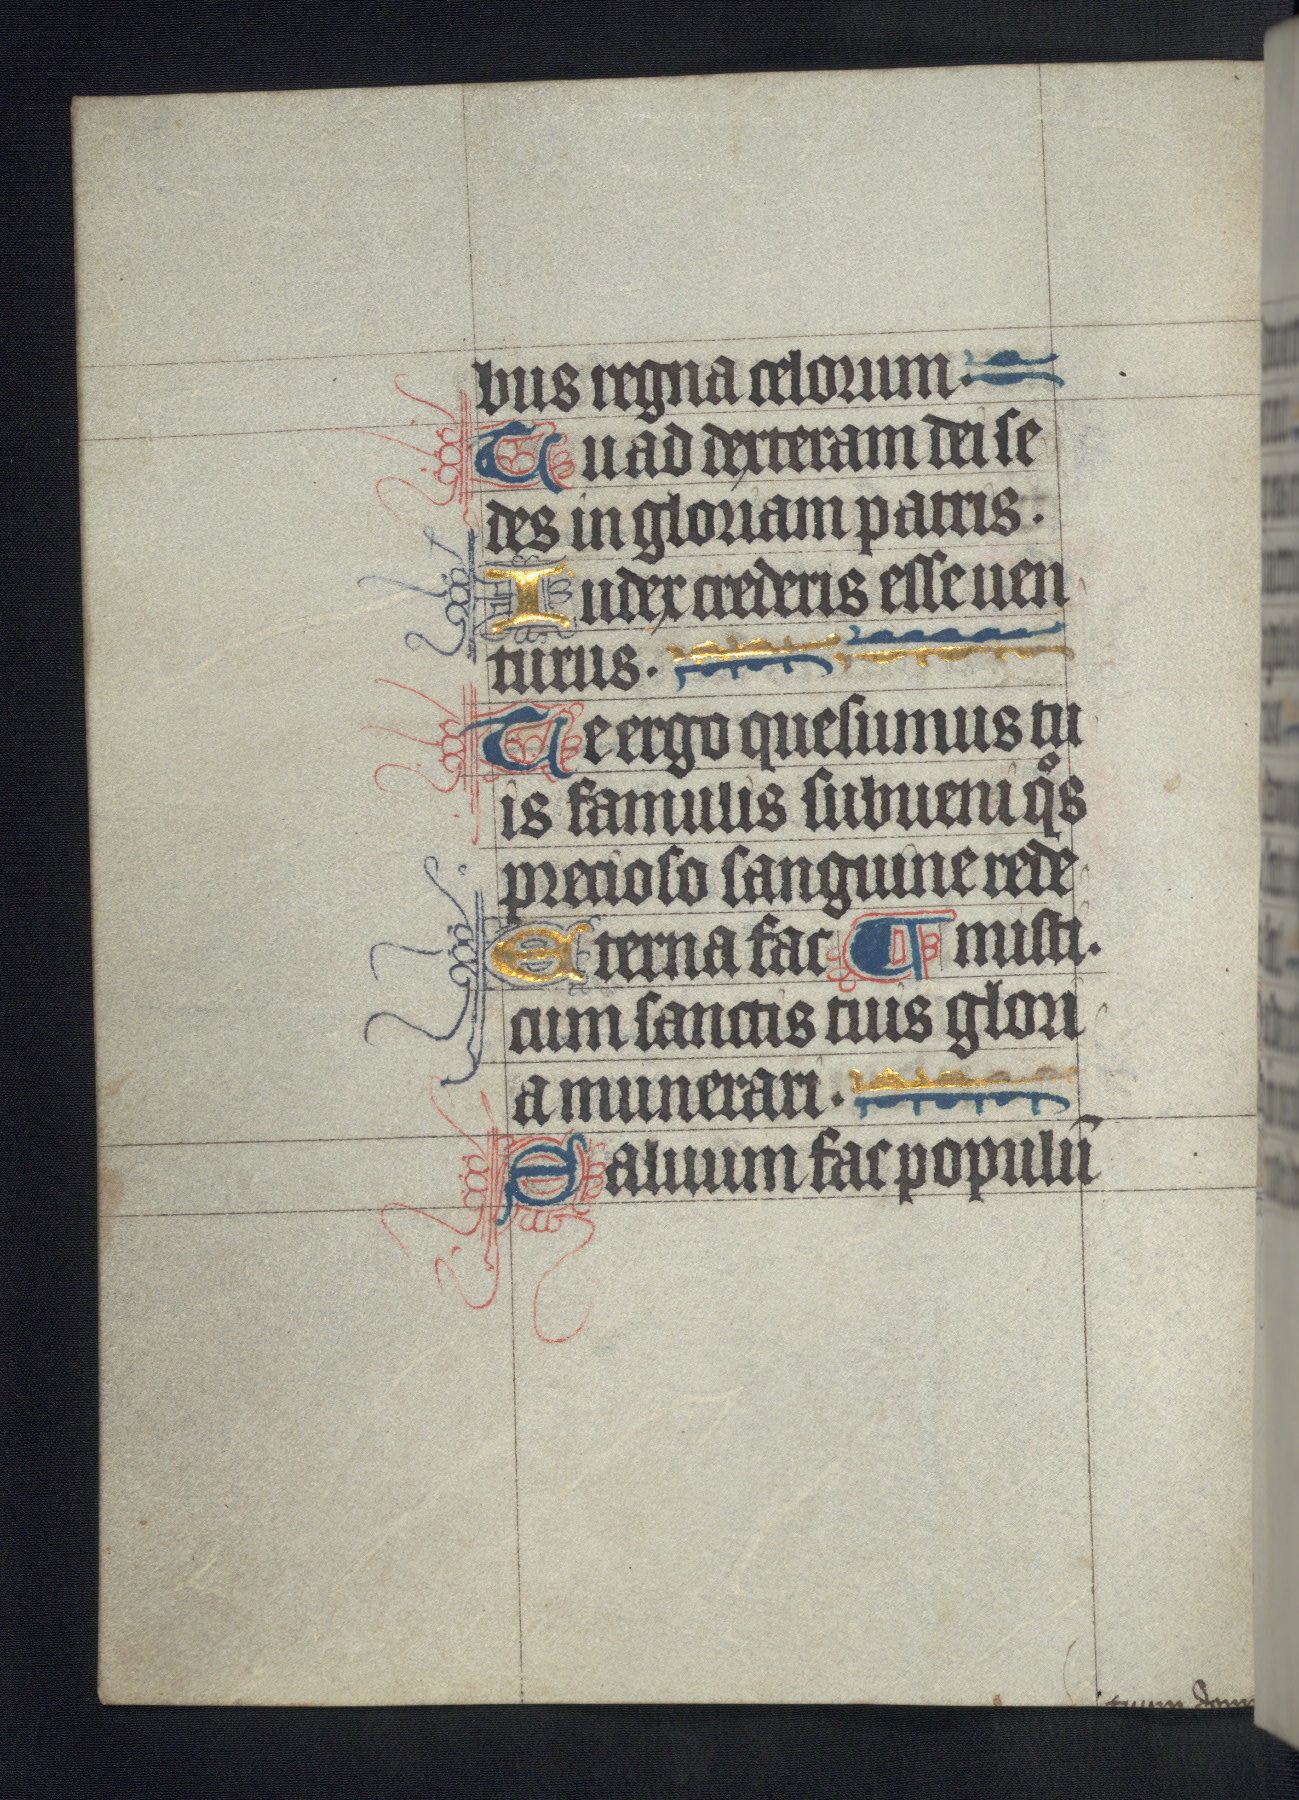 bus regna celorum.
Tu ad dexteram dei se
des in gloriam patris.
Iudex crederis esse uen
turus.
Te ergo quesumus tu
is famulis subueni qͦs
precioso sanguine rede
Eterna fac ¶ misti.
cum sanctis tuis glori
a munerari.
Saluum fac populū
tuum